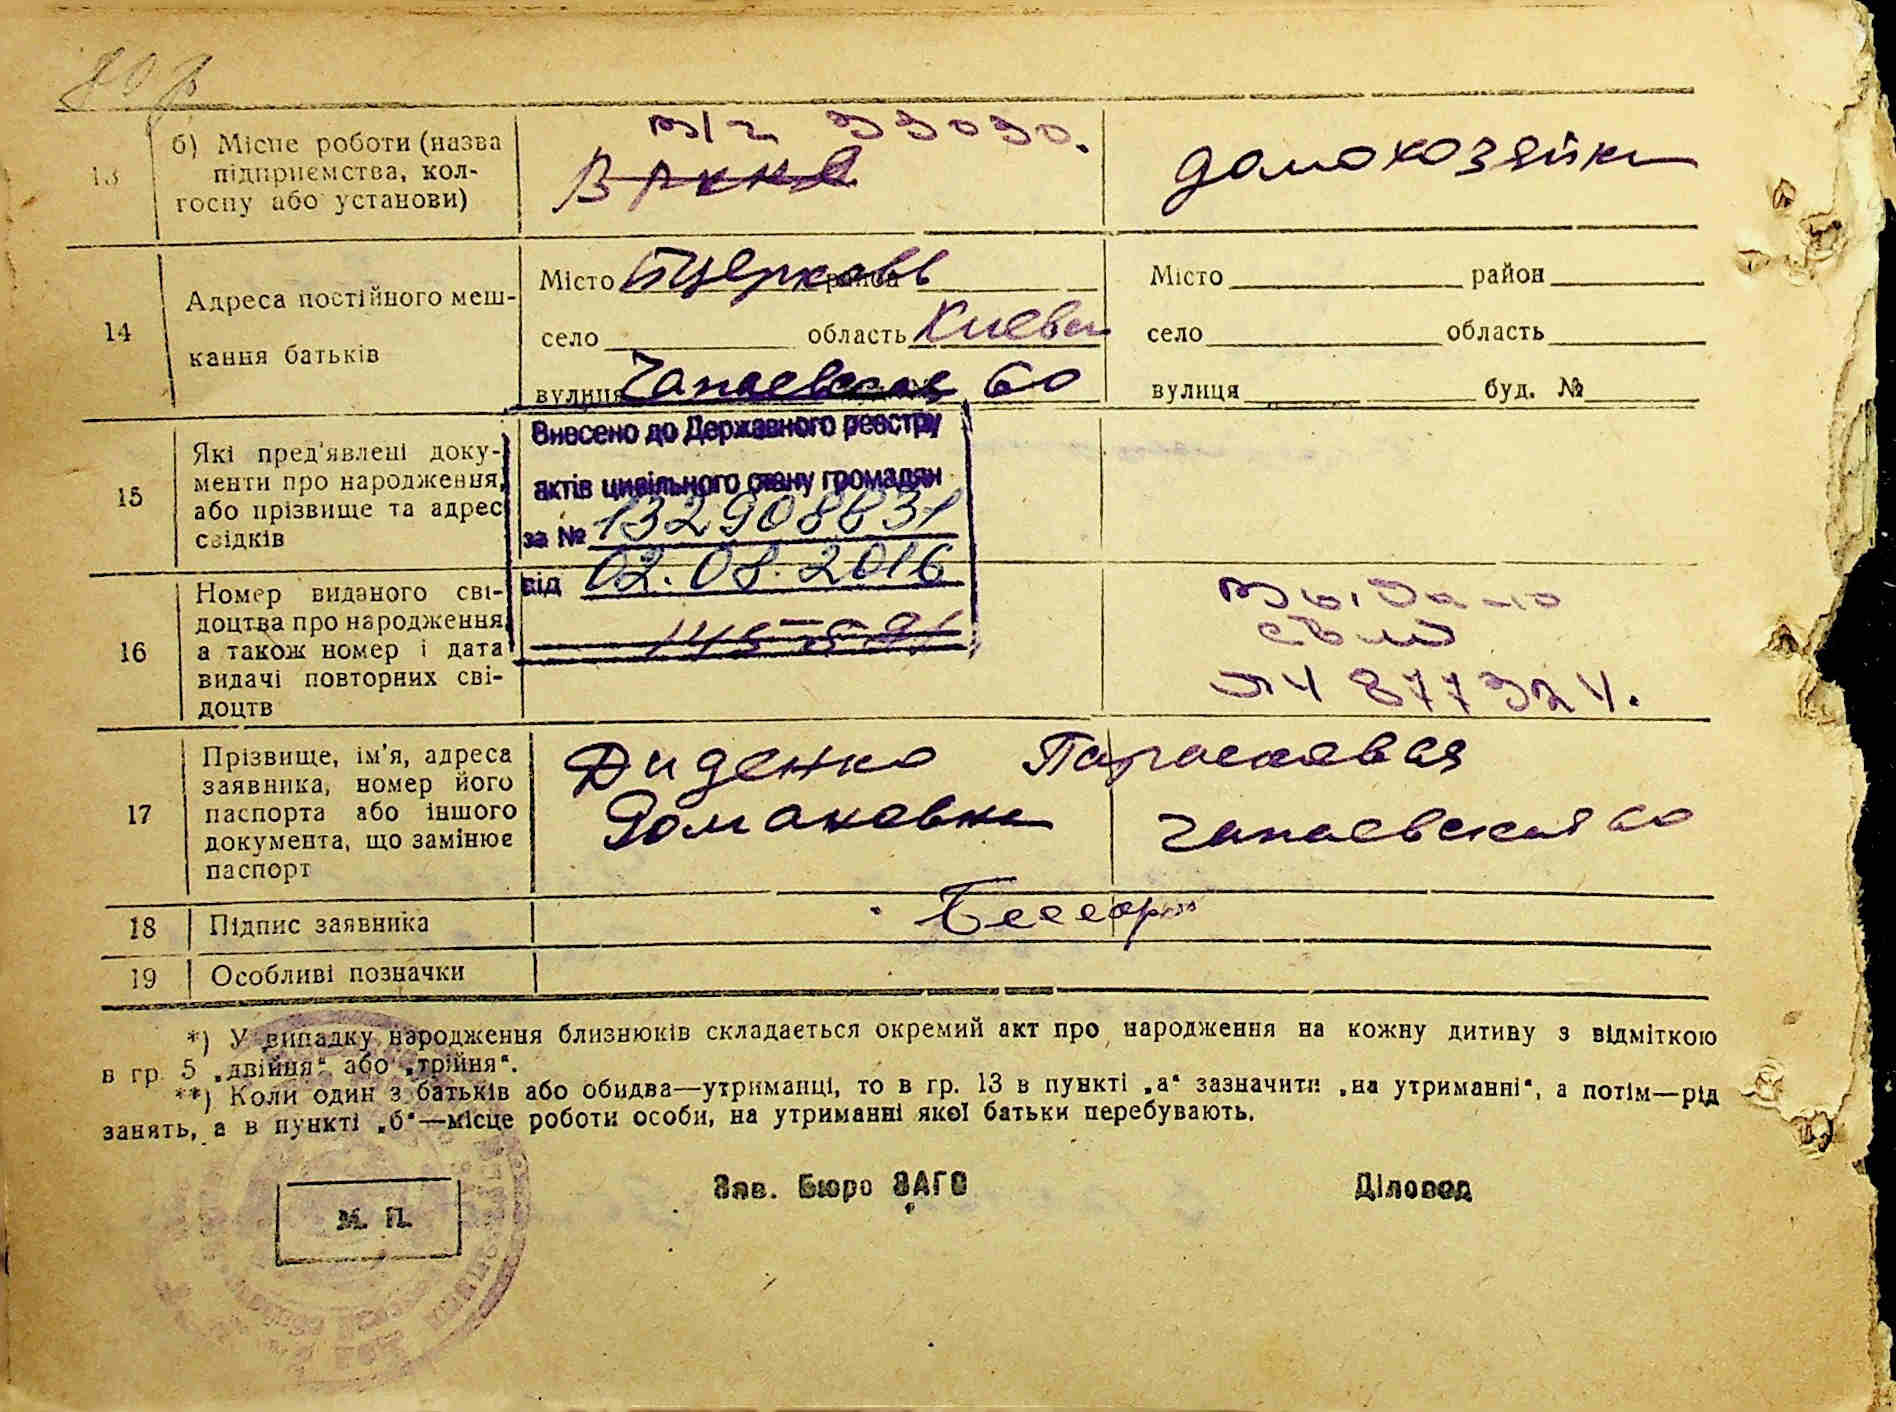 13 б) Місце роботи (назва підприємства, колгоспу або установи)
в/ч 33030.
домохозяйка
14 Адреса постійного мешкання батьків
Місто Бцерковь район
село область Киевск
вулиця Чапаевская 60
Місто район
село область
вулиця буд. №
15 Які пред'явлені документи про народження, або прізвище та адрес свідків
Внесено до Державного реєстру
актів цивільного стану громадян
за № 132908831
від 02.08.2016
16 Номер виданого свідоцтва про народження, а також номер і дата видачі повторних свідоцтв
Выдано
877324.
17 Прізвище, ім'я, адреса заявника, номер його паспорта або іншого документа, що замінює паспорт
Диденко Парасковья
Романовна Чапаевская 60
18 Підпис заявника
19 Особливі позначки
*) У випадку народження близнюків складається окремий акт про народження на кожну дитину з відміткою
в гр. 5 „двійня“ або „трійня“.
**) Коли один з батьків або обидва—утриманці, то в гр. 13 в пункті „а“ зазначити „на утриманні“, а потім—рід
занять, а в пункті „б“—місце роботи особи, на утриманні якої батьки перебувають.
Зав. Бюро ЗАГС Діловод
М. П.